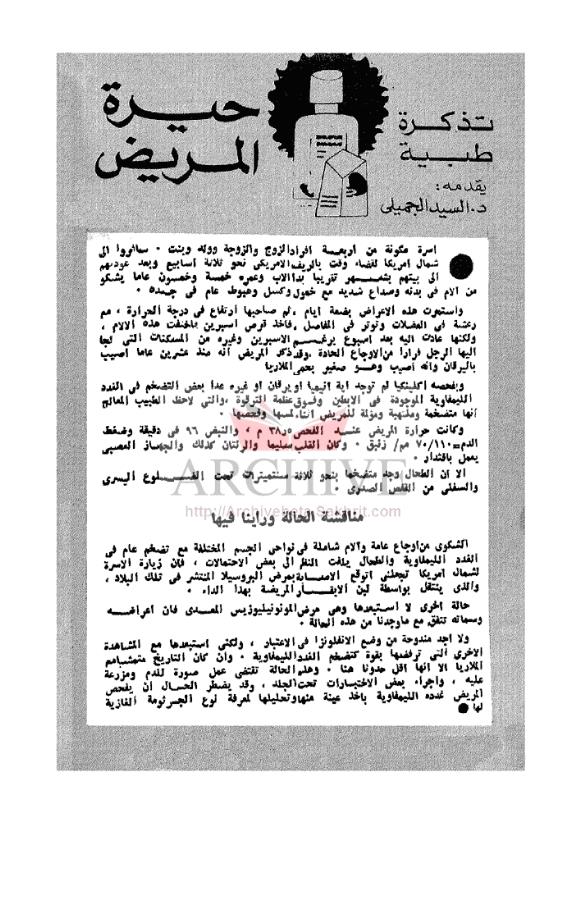 تذكرة
طبية
حيرة
المريض
يقدمه:
د. السيد الجميلى
اسرة مكونة من اربعة افراد الزوج والزوجة وولد وبنت ٠ سافروا الى
شمال امريكا لقضاء وقت بالريف الامريكى نحو ثلاثة اسابيع وبعد عودتهم
الى بيتهم بشهر تقريبا بدا الاب وعمره خمسة وخمسون عاما يشكو
من الام فى بدنه وصداع شديد مع خمول وكسل وهبوط عام فى جسده ٠
واستمرت هذه الاعراض بضعة ايام ، ثم صاحبها ارتفاع فى درجة الحرارة ، مع
رعشة فى العضلات وتوتر فى المفاصل ، فاخذ قرص اسبرين فاختفت هذه الالام ،
ولكنها عادت اليه بعد اسبوع برغم الاسبرين وغيره من المسكنات التى لجا
اليها الرجل فرارا من الاوجاع الحادة ٠ وقد ذكر المريض انه منذ عشرين عاما أصيب
باليرقان وانه أصيب وهو صغير بحمى الملاريا
وبفحصه اكلينيكيا لم توجد اية انيميا او يرقان او غيره عدا بعض التضخم فى الغدد
الليمفاوية الموجودة فى الابطين وفوق عظمة الترقوة والتى لاحظ الطبيب المعالج
أنها متضخمة وملتهبة ومؤلة للمريض اثناء لمسها وفحصها ٠
وكانت حرارة المريض عند الفحص ٣٨٫٥ م ، والنبض ٩٦ فى دقيقة وضغط
الدم = ١١٠/٧٠ مم/ زئبق ٠ وكان القلب سليما والرئتان كذلك والجهاز العصبى
يعمل باقتدار ٠
الا ان الطحال وجد متضخما بنحو ثلاثة سنتيمترات تحت الضلوع اليسرى
والسفلى من القفص الصدرى ٠
ARCHIVE
http://Archivebeta.Sakhrit.com
مناقشة الحالة وراينا فيها
الشكوى من اوجاع عامة والام شاملة فى نواحى الجسم المختلفة مع تضخم عام فى
الغدد الليمفاوية والطحال يلفت النظر الى بعض الاحتمالات ، فان زيارة الاسرة
لشمال امريكا تجعلنى اتوقع الاصابة بمرض البروسيلا المنتشر فى تلك البلاد ،
والذى ينتقل بواسطة لبن الابقار المريضة بهذا الداء ٠
حالة اخرى لا استبعدها وهى مرض المونونيليوزيس المعدى فان اعراضه
وسماته تتفق مع ماوجدنا من هذه الحالة ٠
ولا اجد مندوحة من وضع الانفلونزا فى الاعتبار ، ولكنى استبعدها مع المشاهدة
الاخرى التى ترفضها بقوة كتضخم الغدد الليمفاوية ٠ وان كان التاريخ متمشيا مع
الملاريا الا انها اقل حدوثا هنا ٠ وهذه الحالة تقتضى عمل صورة للدم ومزرعة
عليه ، واجراء بعض الاختبارات تحت الجلد ، وقد يضطر الحال ان يفحص
المريض غدده الليمفاوية باخذ عينة منها وتحليلها لمعرفة نوع الجرثومة الغازية
لها